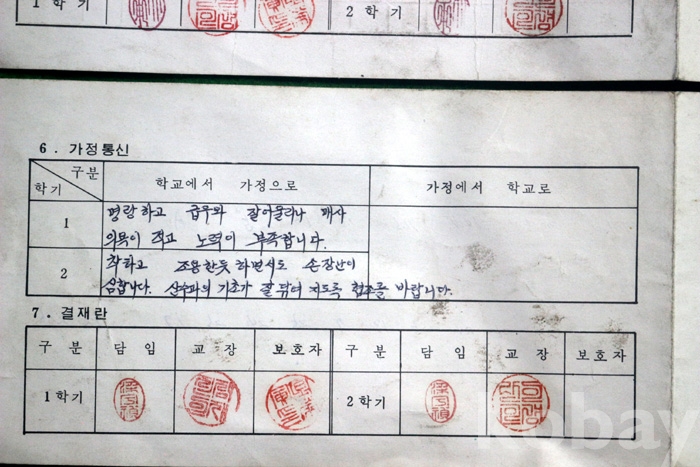 1 학기
2 학기
6. 가정통신
구분
학기
학교에서 가정으로
가정에서 학교로
1
명랑하고 급우와 잘어울리나 매사
의욕이 적고 노력이 부족합니다.
2
착하고 조용한듯 하면서도 손장난이
심합니다. 산수과의 기초가 잘 닦여 지도록 협조를 바랍니다.
7. 결재란
구 분 담 임 교 장 보호자 구 분 담 임 교 장 보호자
1학기 2학기
kobay